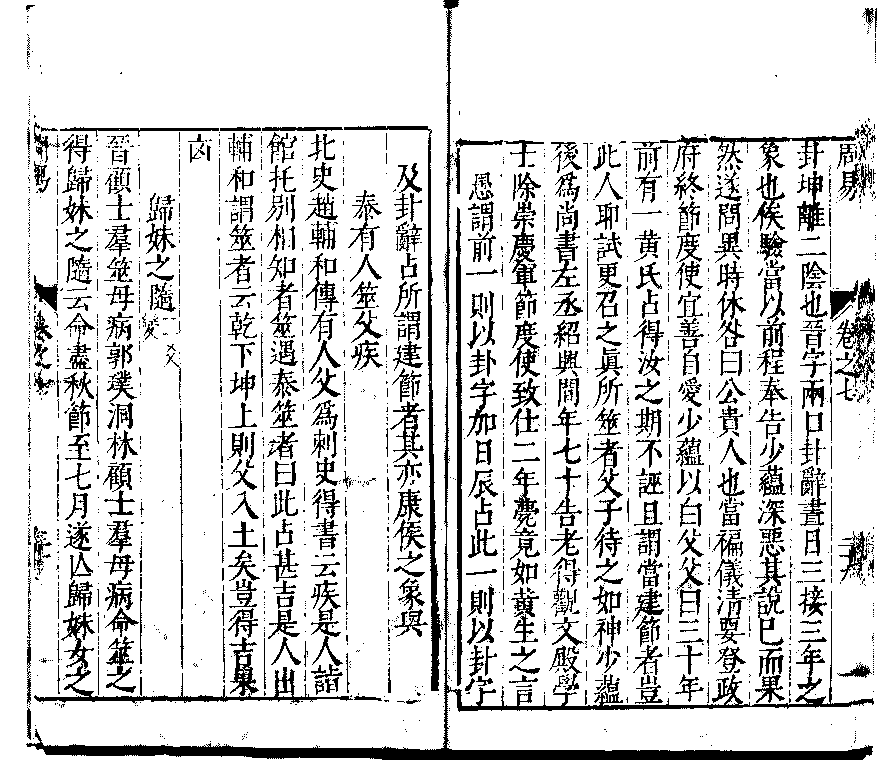 周易 卷之七
卦坤離二陰也晉字兩口卦辭晝日三接三年之
象也俟驗當以前程奉告少蘊深惡其說已而果
然遂問異時休咎曰公貴人也當褊儀清要登政
府終節度使宜善自愛少蘊以白父父曰三十年
前有一黄氏占得汝之期不誣且謂當建節者豈
此人耶試更召之眞所筮者父子待之如神少蘊
後爲尚書左丞紹興間年七十告老得觀文殿學
士除崇慶軍節度使致仕二年薨竟如黄生之言
愚謂前一則以卦字加日辰占此一則以卦字
及卦辭占所謂建節者其亦康侯之象與
泰有人筮父疾
北史趙輔和傳有人父爲刺史得書云疾是人詣
館托别相知者筮遇泰筮者曰此占甚吉是人出
輔和謂筮者云乾下坤上則父入土矣豈得吉果
凶
歸妹之隨
晉顧士羣筮母病郭璞洞林顧士羣母病命筮之
得歸妹之隨云命盡秋節至七月遂亾歸妹女之